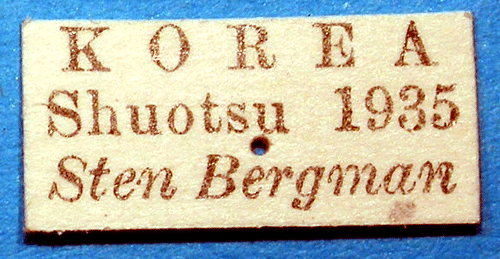 KOREA
Shuotsu 1935
Sten Bergman